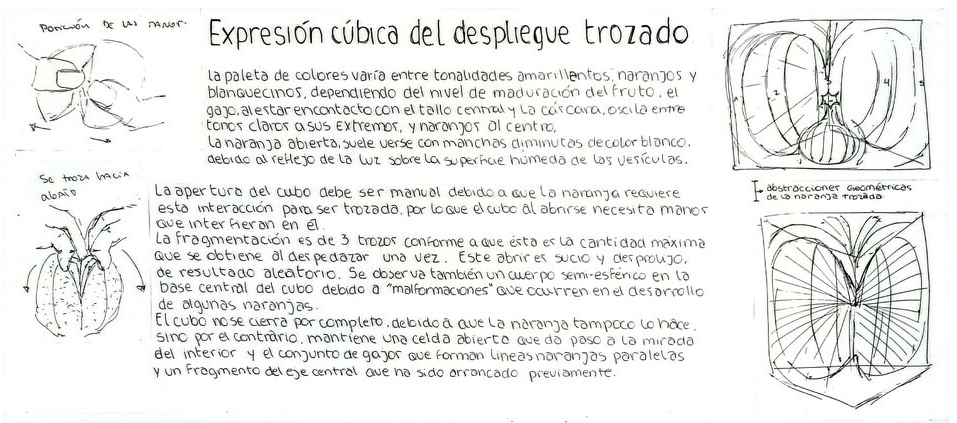 Posición de las manos.
Expresión cúbica del despliegue trozado
la paleta de colores varía entre tonalidades amarillentos, naranjos y
blanquecinos, dependiendo del nivel de maduración del fruto. el
gajo, al estar en contacto con el tallo central y la cáscara, oscila entre
tonos claros a sus extremos, y naranjos al centro.
la naranja abierta, suele verse con manchas diminutas de color blanco,
debido al reflejo de la luz sobre la superficie húmeda de las vesículas.
Se troza hacia
abajo
La apertura del cubo debe ser manual debido a que la naranja requiere
esta interacción para ser trozada, por lo que el cubo al abrirse necesita manos
que interfieran en él.
La fragmentación es de 3 trozos conforme a que ésta es la cantidad máxima
que se obtiene al despedazar una vez. Este abrir es sucio y desprolijo,
de resultado aleatorio. Se observa también un cuerpo semi-esférico en la
base central del cubo debido a "malformaciones" que ocurren en el desarrollo
de algunas naranjas.
El cubo no se cierra por completo, debido a que la naranja tampoco lo hace,
sino por el contrario, mantiene una celda abierta que da paso a la mirada
del interior y el conjunto de gajos que forman líneas naranjas paralelas
y un fragmento del eje central que ha sido arrancado previamente.
1 2 3 4 5
abstracciones geométricas
de la naranja trozada.